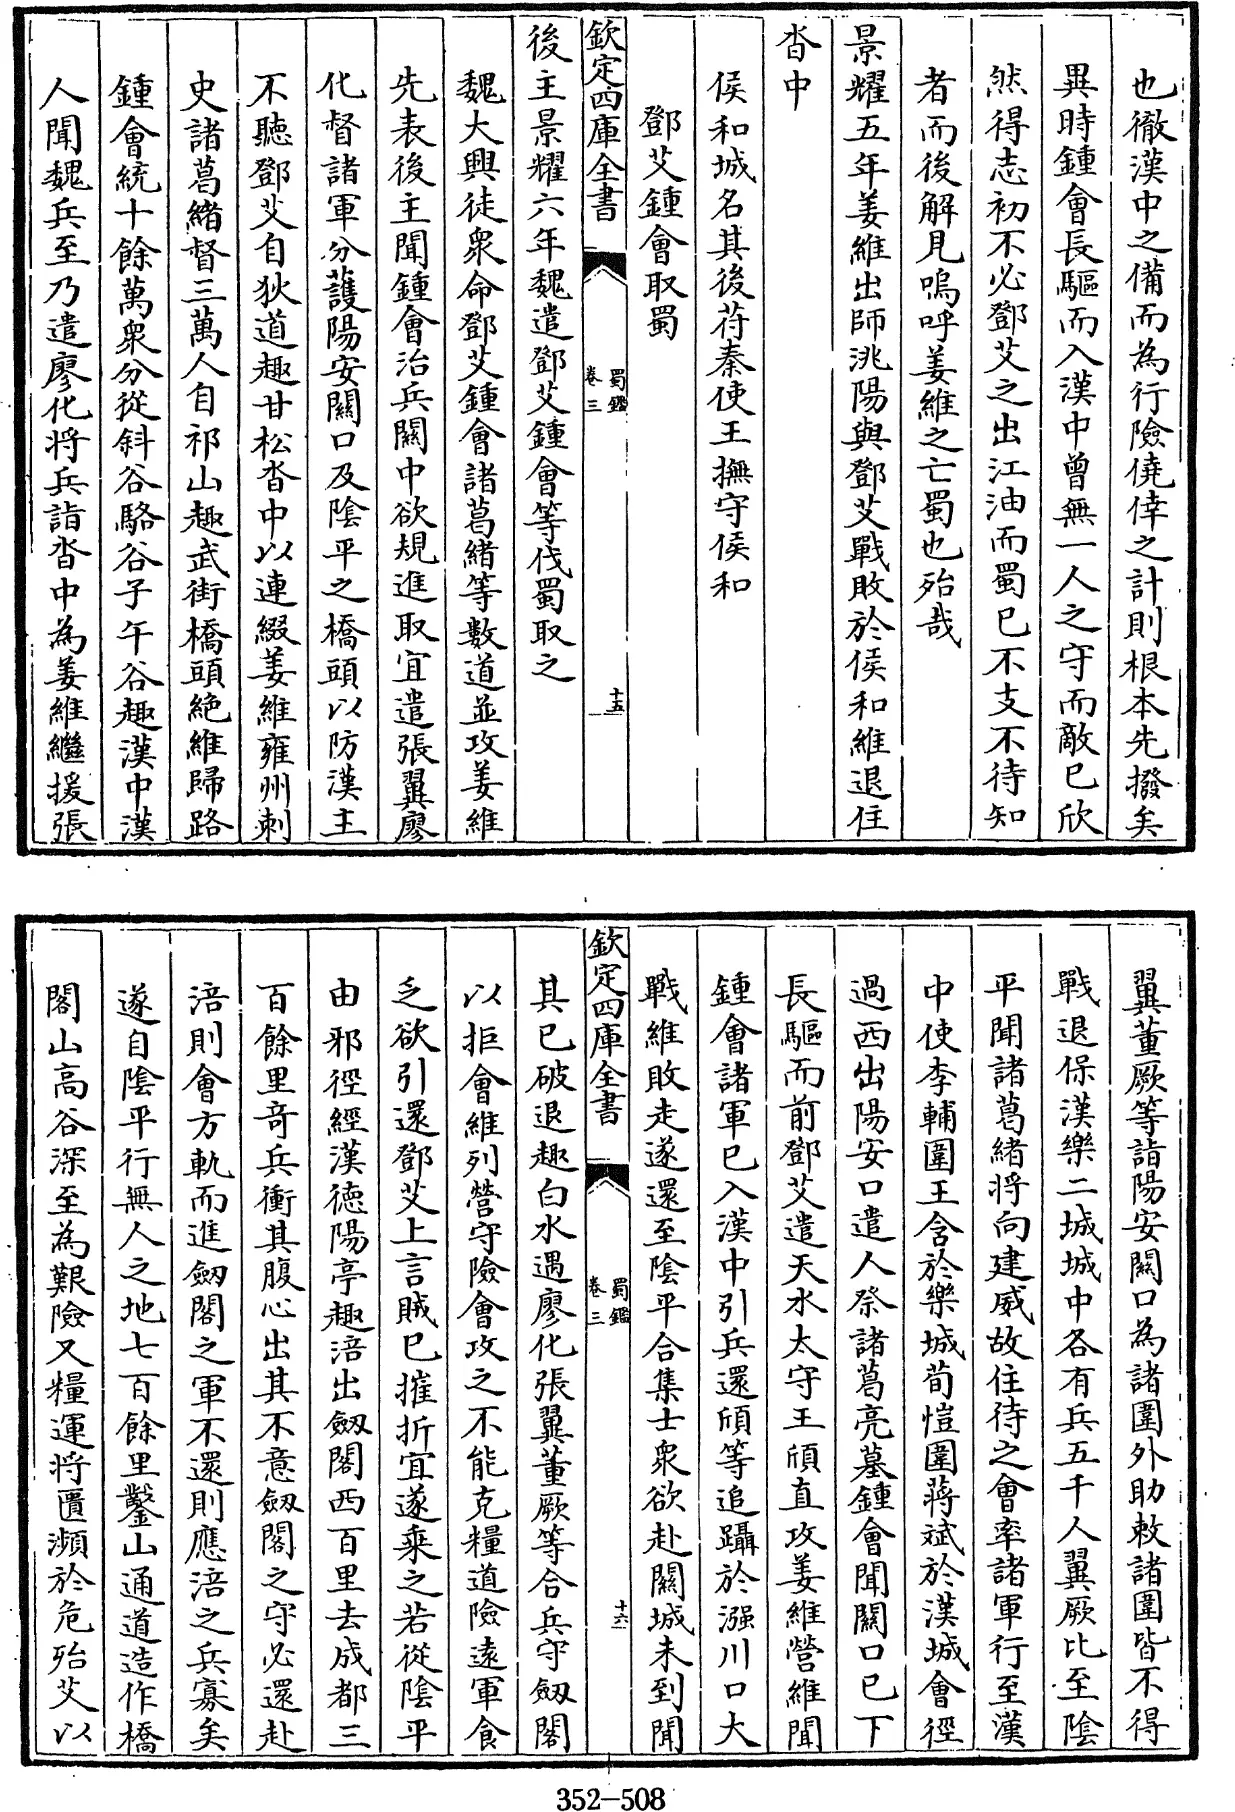 也徹漢中之備而為行險僥倖之計則根本先撥矣
異時鍾會長驅而入漢中曾無一人之守而敵已欣
然得志初不必鄧艾之出江油而蜀已不支不待知
者而後解見嗚呼姜維之亡蜀也殆哉
景耀五年姜維出師洮陽與鄧艾戰敗於侯和維退住
沓中
侯和城名其後苻秦使王撫守侯和
鄧艾鍾會取蜀
欽定四庫全書
蜀鑑
卷三
十五
後主景耀六年魏遣鄧艾鍾會等伐蜀取之
魏大興徒衆命鄧艾鍾會諸葛緒等數道並攻姜維
先表後主聞鍾會治兵關中欲規進取宜遣張翼廖
化督諸軍分護陽安關口及陰平之橋頭以防漢主
不聽鄧艾自狄道趣甘松沓中以連綴姜維雍州刺
史諸葛緒督三萬人自祁山趣武街橋頭絶維歸路
鍾會統十餘萬衆分從斜谷駱谷子午谷趣漢中漢
人聞魏兵至乃遣廖化将兵詣沓中為姜維繼援張
翼董厥等詣陽安關口為諸圍外助敕諸圍皆不得
戰退保漢樂二城城中各有兵五千人翼厥比至陰
平聞諸葛緒将向建威故住待之會率諸軍行至漢
中使李輔圍王含於樂城荀愷圍蔣斌於漢城會徑
過西出陽安口遣人祭諸葛亮墓鍾會聞關口已下
長驅而前鄧艾遣天水太守王頎直攻姜維營維聞
鍾會諸軍已入漢中引兵還頎等追躡於彊川口大
戰維敗走遂還至陰平合集士衆欲赴關城未到聞
欽定四庫全書
蜀鑑
卷三
十六
其已破退趣白水遇廖化張翼董厥等合兵守劔閣
以拒會維列營守險會攻之不能克糧道險遠軍食
乏欲引還鄧艾上言賊已摧折宜遂乘之若從陰平
由邪徑經漢德陽亭趣涪出劔閣西百里去成都三
百餘里奇兵衝其腹心出其不意劔閣之守必還赴
涪則會方軌而進劔閣之軍不還則應涪之兵寡矣
遂自陰平行無人之地七百餘里鑿山通道造作橋
閣山高谷深至為艱險又糧運将匱瀕於危殆艾以
352-508